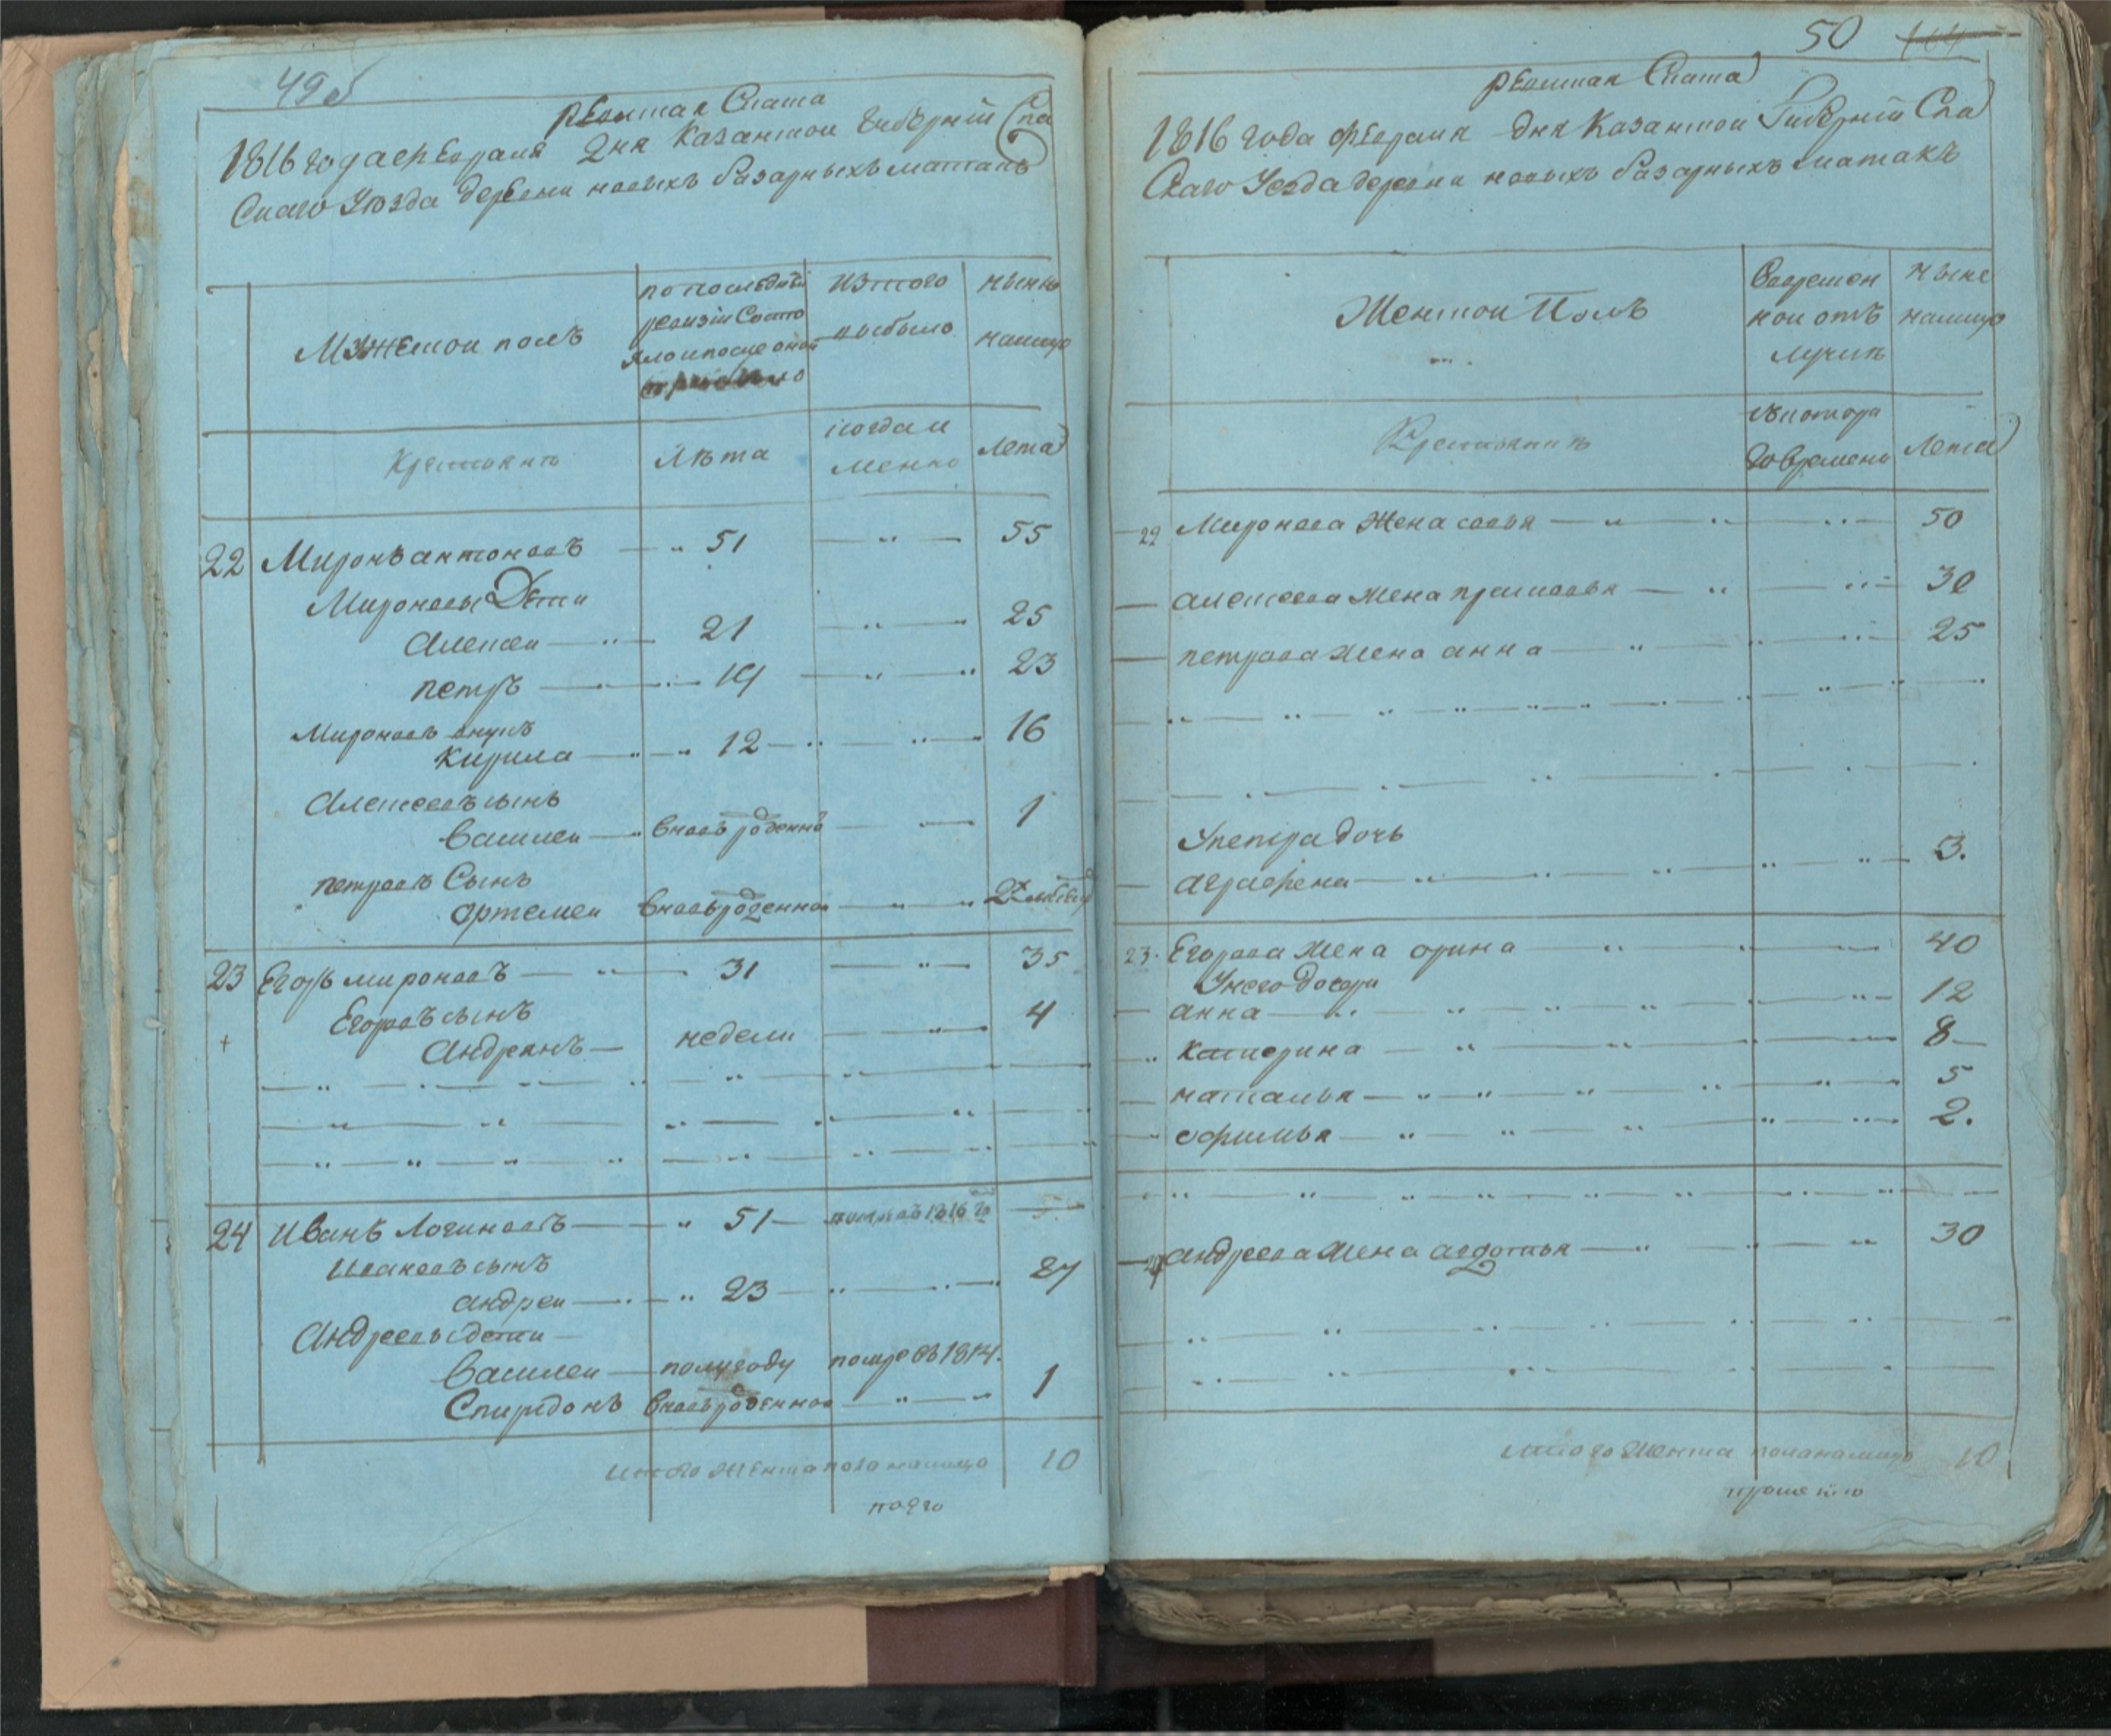 49об
ревизкая Сказка
1816 года февраля дня Казанской Губернии Спа
Скаго Уезда деревни новыхъ базарныхъ матакъ
Мужескои полъ
по последней ревизии Состо яло и после оной
изтого выбыло
ныне налицо
Крестьянъ
Лѣта
когда и менно
Лета
22 Миронъ антоновъ 51 55
Мироновы Дети
Алексеи 21 25
петръ 19 23
Мироновъ внукъ
Кирила 12 16
Алексеевъ сынъ
Василеи вновь рожденнъ 1
петровъ Сынъ
артемеи вновьрожденнои
23 Егоръ мироновъ 31 35
Егоровъ сынъ
Андреянъ недели 4
24 Иванъ Логиновъ 51 помре въ 1816 го
Ивановъ сынъ
андреи 23 27
Андреевы дети
Василеи полугоду помре въ 1814.
Спиридонъ вновьрожденнои 1
итого налицо 10
50
ревизкая Сказка
1816 года февраля дня Казанской Губернии Спа
Скаго Уезда деревни новыхъ базарныхъ матакъ
Женскои Полъ
Вовремен нои отъ лучкѣ
ныне налицо
Крестьянъ
скотора го времени
Лета
22 Миронова Жена совья 50
алексеева жена прасковья 30
петрова жена анна 25
Упетра дочь
аграфена 3.
23. Егорова жена орина 40
Унего дочери
анна 12
Катерина 8
наталья 5
офимья 2.
24 андреева жена авдотья 30
итого женска пола налицо 10